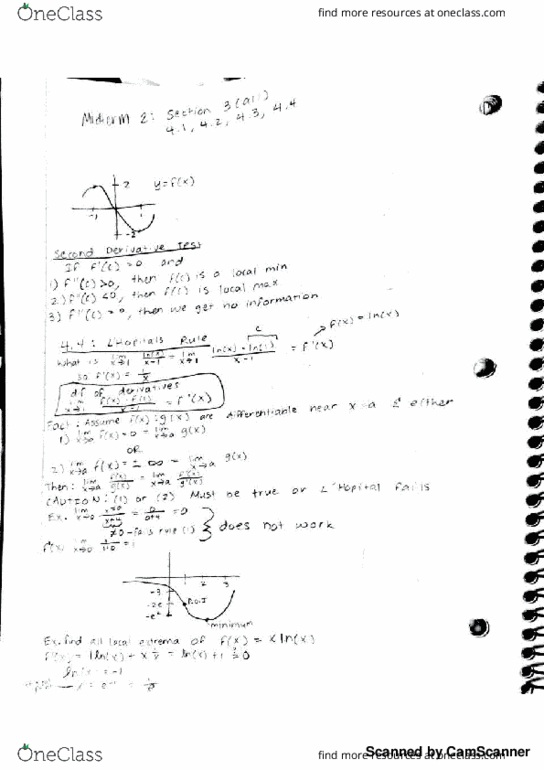 OneClass
find more resources at oneclass.com
Midterm 2: Section 3 (all)
4.1, 4.2, 4.3, 4.4
2 y=f(x)
-1 1
-2
Second Derivative Test
If f'(c)=0 and
1) f''(c)>0, then f(c) is a local min
2) f''(c)<0, then f(c) is local max
3) f''(c)=0, then we get no information
4.4: L'Hopitals Rule
f(x)=ln(x)
What is lim x→1 ln(x)/x-1 = lim x→1 ln(x)-ln(1)/x-1 = f'(x)
so f'(x)=1/x
df of derivatives
= f'(x)
Fact: Assume f(x) & g(x) are differentiable near x=a & either
1) lim x→a f(x)=0=lim x→a g(x)
OR
2) lim x→a f(x)=±∞=lim x→a g(x)
Then: lim x→a f(x)/g(x) = lim x→a f'(x)/g'(x)
CAUTION: (1) or (2) Must be true or L'Hopital fails
Ex. lim x→0 = 0/0+4 =0
≠0-fails rule (1) does not work
lim x→0 =1
2 3
-3
-2e P.O.I
-e²
minimum
Ex. find all local extrema of f(x)=xln(x)
f'(x)=1ln(x)+x 1/x = ln(x)+1=0
ln(x)=-1
OneClass
find more resources at oneclass.com
Scanned by CamScanner